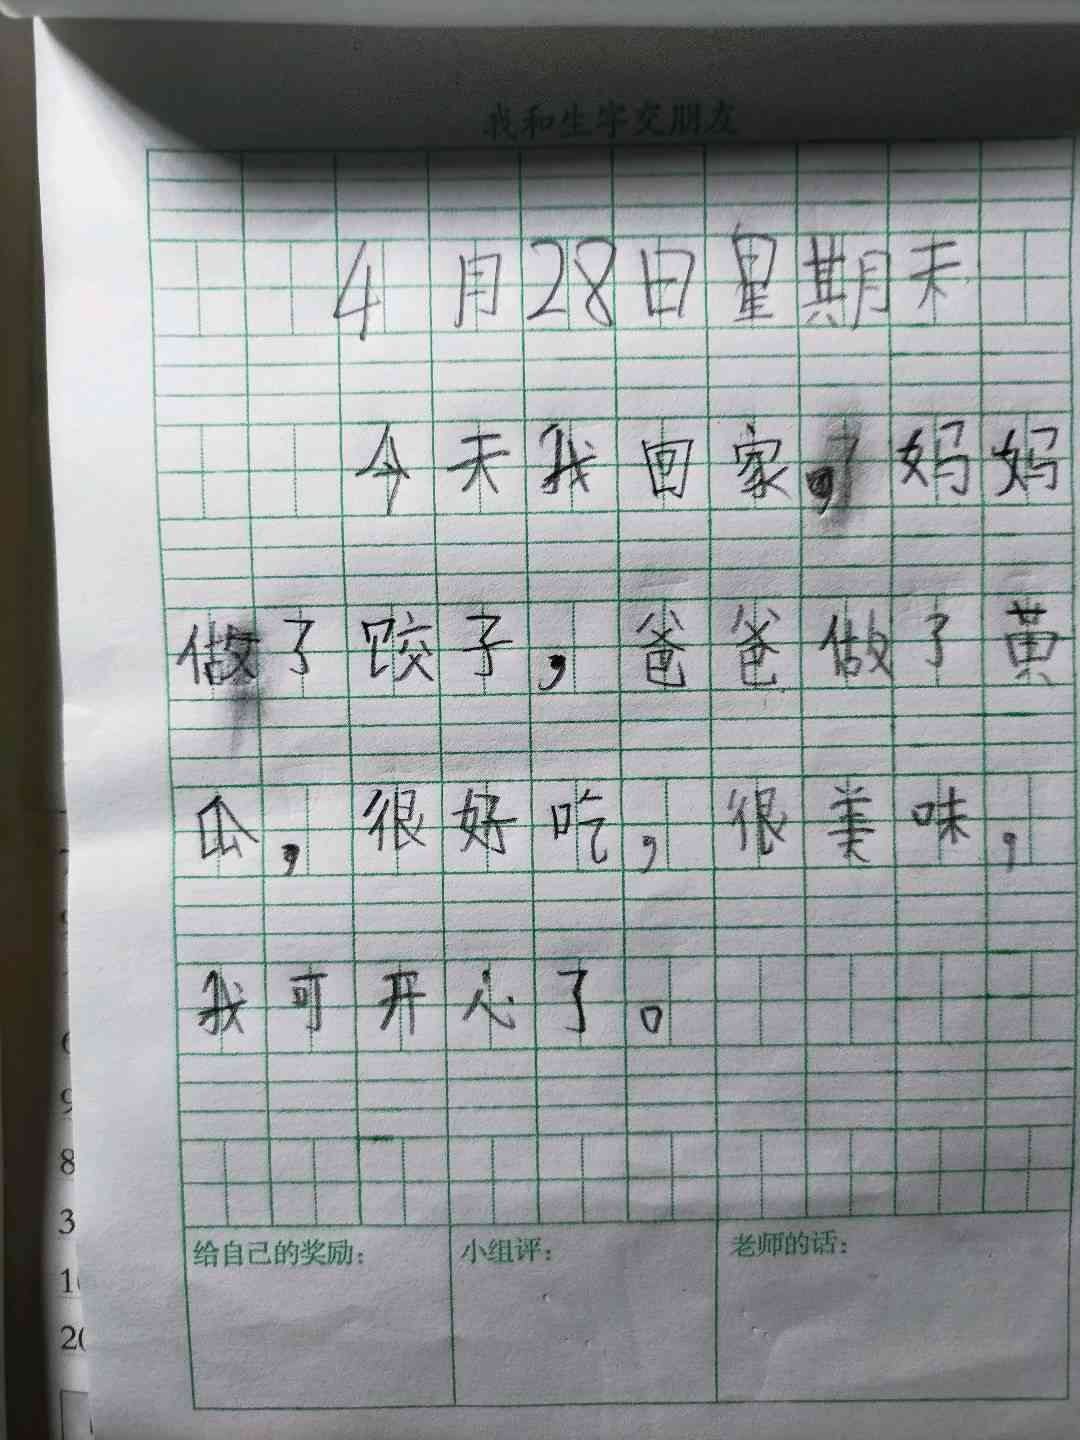 我和生字交朋友
4月28日星期末
今天我回家,了妈妈
做了饺子，爸爸做了黄
瓜，很好吃，很美味，
我可开心了。
给自己的奖励：
小组评：
老师的话：
9
8
3